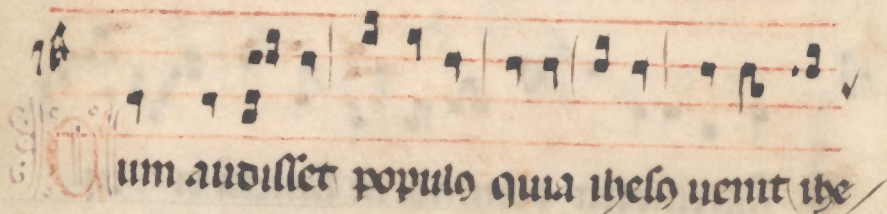 Cum audisset populꝰ quia ihesꝰ uenit ihe